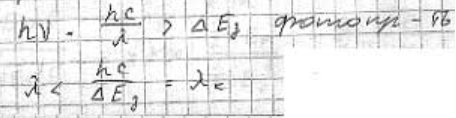 hν = hc/λ > ΔE₃ фотопр-ть
λ < hc/ΔE₃ = λк